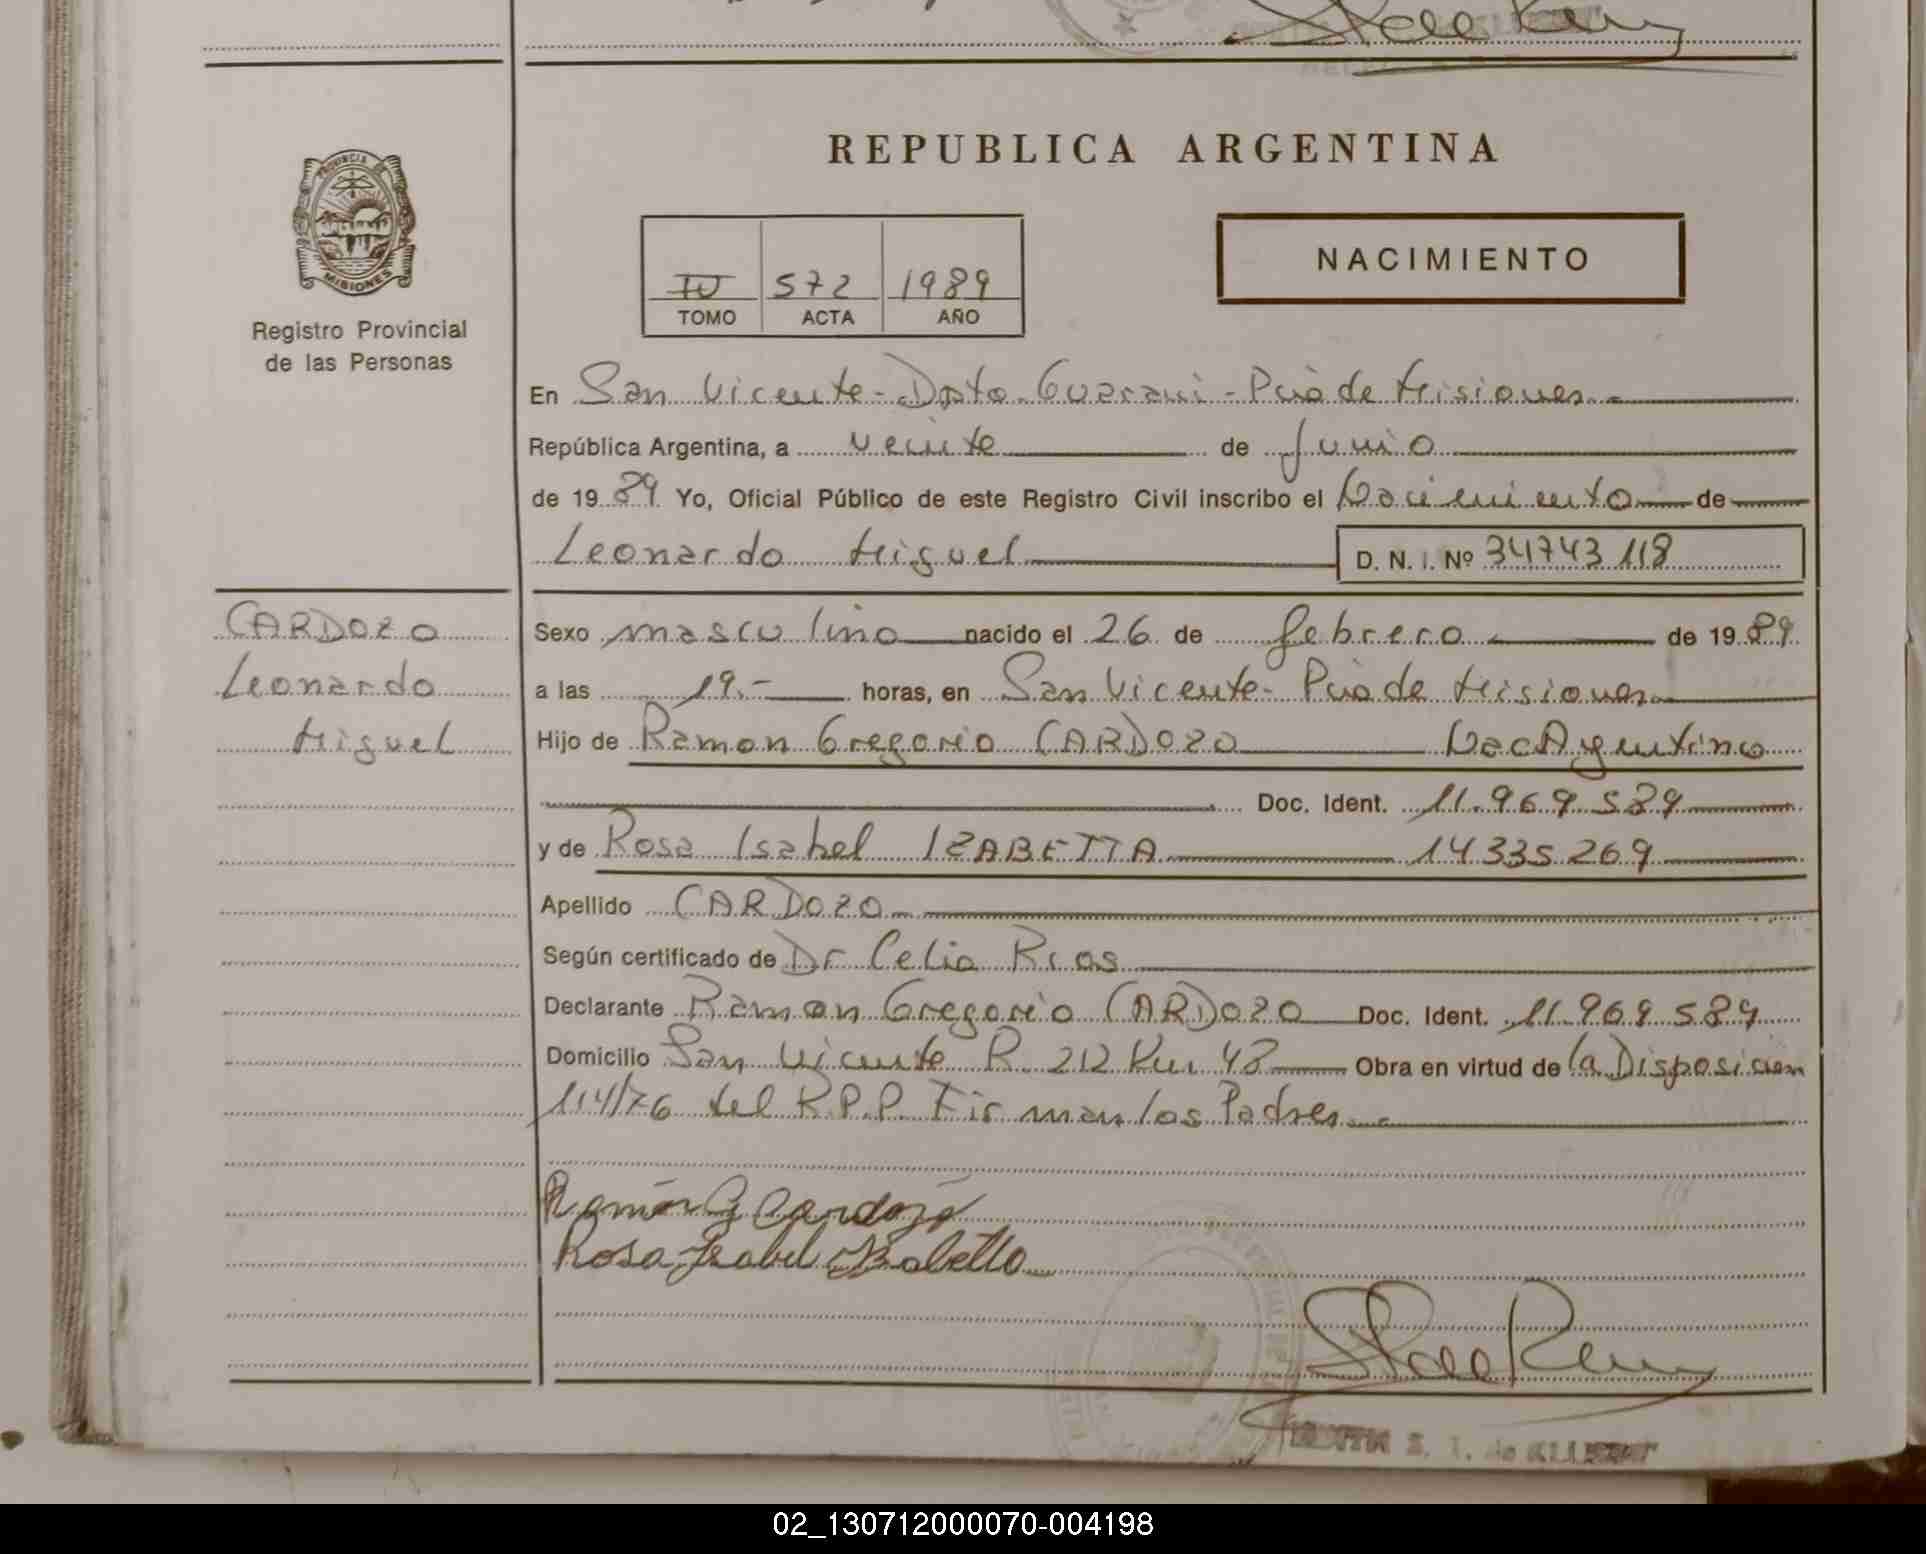 REPUBLICA ARGENTINA
PROVINCIA DE
MISIONES
Registro Provincial
de las Personas
IV 572 1989
TOMO ACTA AÑO
NACIMIENTO
En San Vicente - Dpto. Guarani - Pcia de Misiones.-
República Argentina, a veinte de Junio
de 1989 Yo, Oficial Público de este Registro Civil inscribo el Nacimiento de
Leonardo Miguel D. N. I. Nº 34743118
CARDOZO
Leonardo
Miguel
Sexo masculino nacido el 26 de febrero de 1989
a las 19.- horas, en San Vicente - Pcia de Misiones
Hijo de Ramon Gregorio CARDOZO Nac Argentino
Doc. Ident. 11.969.589
y de Rosa Isabel IZABETTA 14335269
Apellido CARDOZO
Según certificado de Dr Celia Rios
Declarante Ramon Gregorio CARDOZO Doc. Ident. 11.969.589
Domicilio San Vicente R. 212 Km 48 Obra en virtud de la Disposicion
114/76 del R.P.P. Firman los Padres.-
Ramón G Cardozo
Rosa Isabel Izabetta
02_130712000070-004198